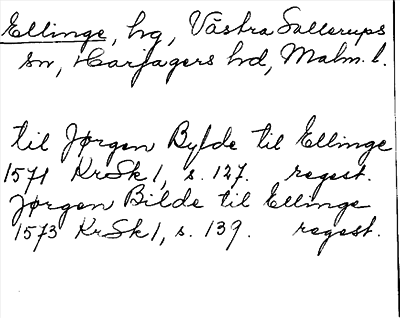 Ellinge, hg, Västra Sallerups
sn, Harjagers hd, Malm. l.
til Jørgen Bylde til Ellinge
1571 KrSk 1, s. 127. regest.
Jørgen Bilde til Ellinge
1573 KrSk 1, s. 139. regest.